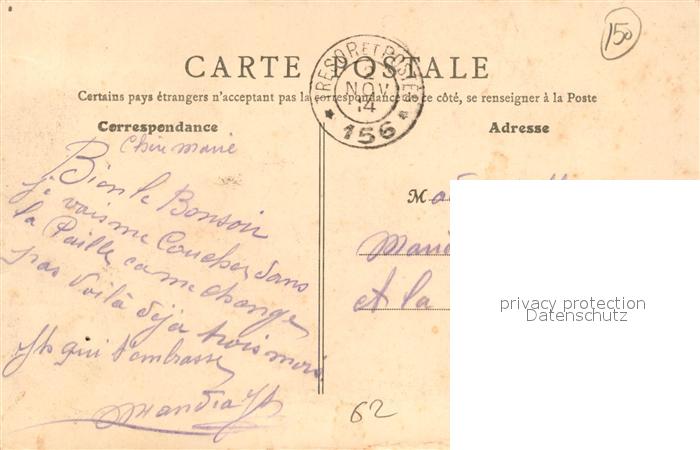 150
CARTE POSTALE
TRESOR ET POSTES
2
NOV
14
* 156 *
Certains pays étrangers n'acceptant pas la correspondance de ce côté, se renseigner à la Poste
Correspondance
Chère marie
Bien le Bonsoir
je vais me Coucher dans
la Paille ca me change
pas Voilà déja trois mois
qui t'embrasse
Adresse
M
Marie
A la
62
privacy protection
Datenschutz